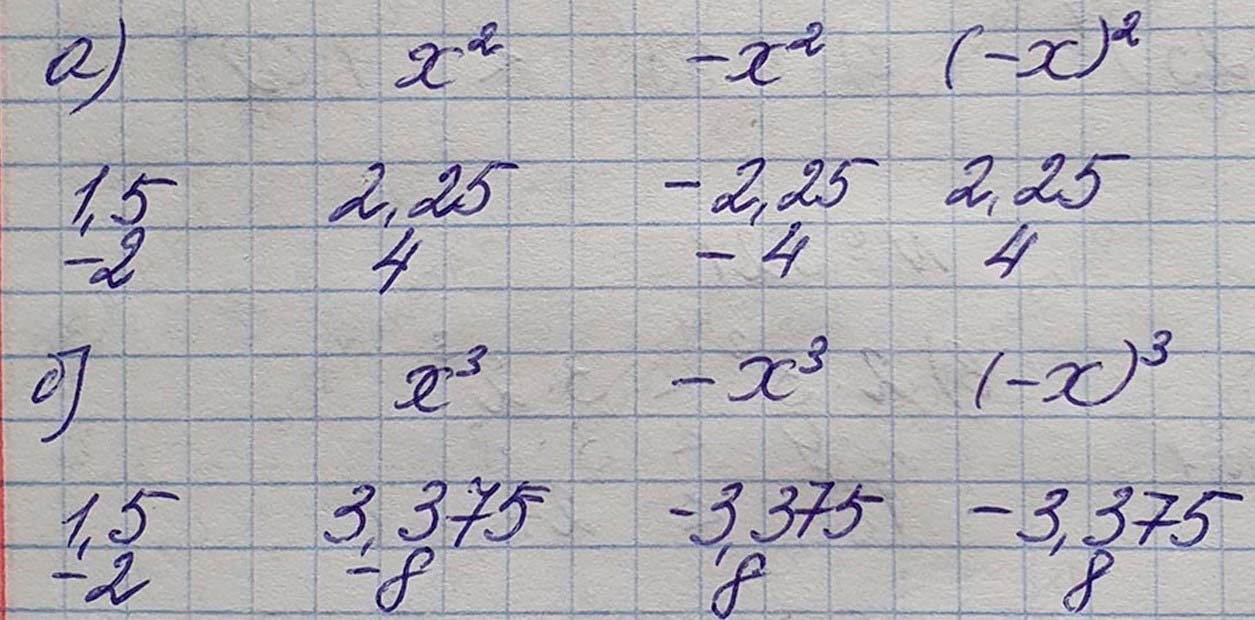 а) x² -x² (-x)²
1,5 2,25 -2,25 2,25
-2 4 -4 4
б) x³ -x³ (-x)³
1,5 3,375 -3,375 -3,375
-2 -8 8 8